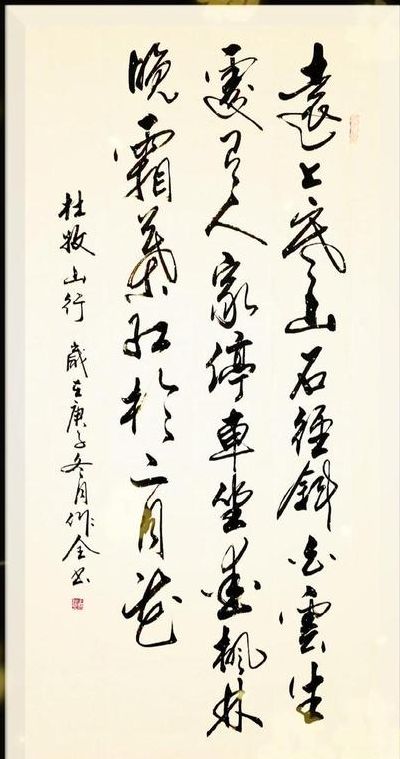 遠上寒山石徑斜白雲生
處有人家停車坐愛楓林
晚霜葉紅於二月花
杜牧山行 歲在庚子冬月作全书